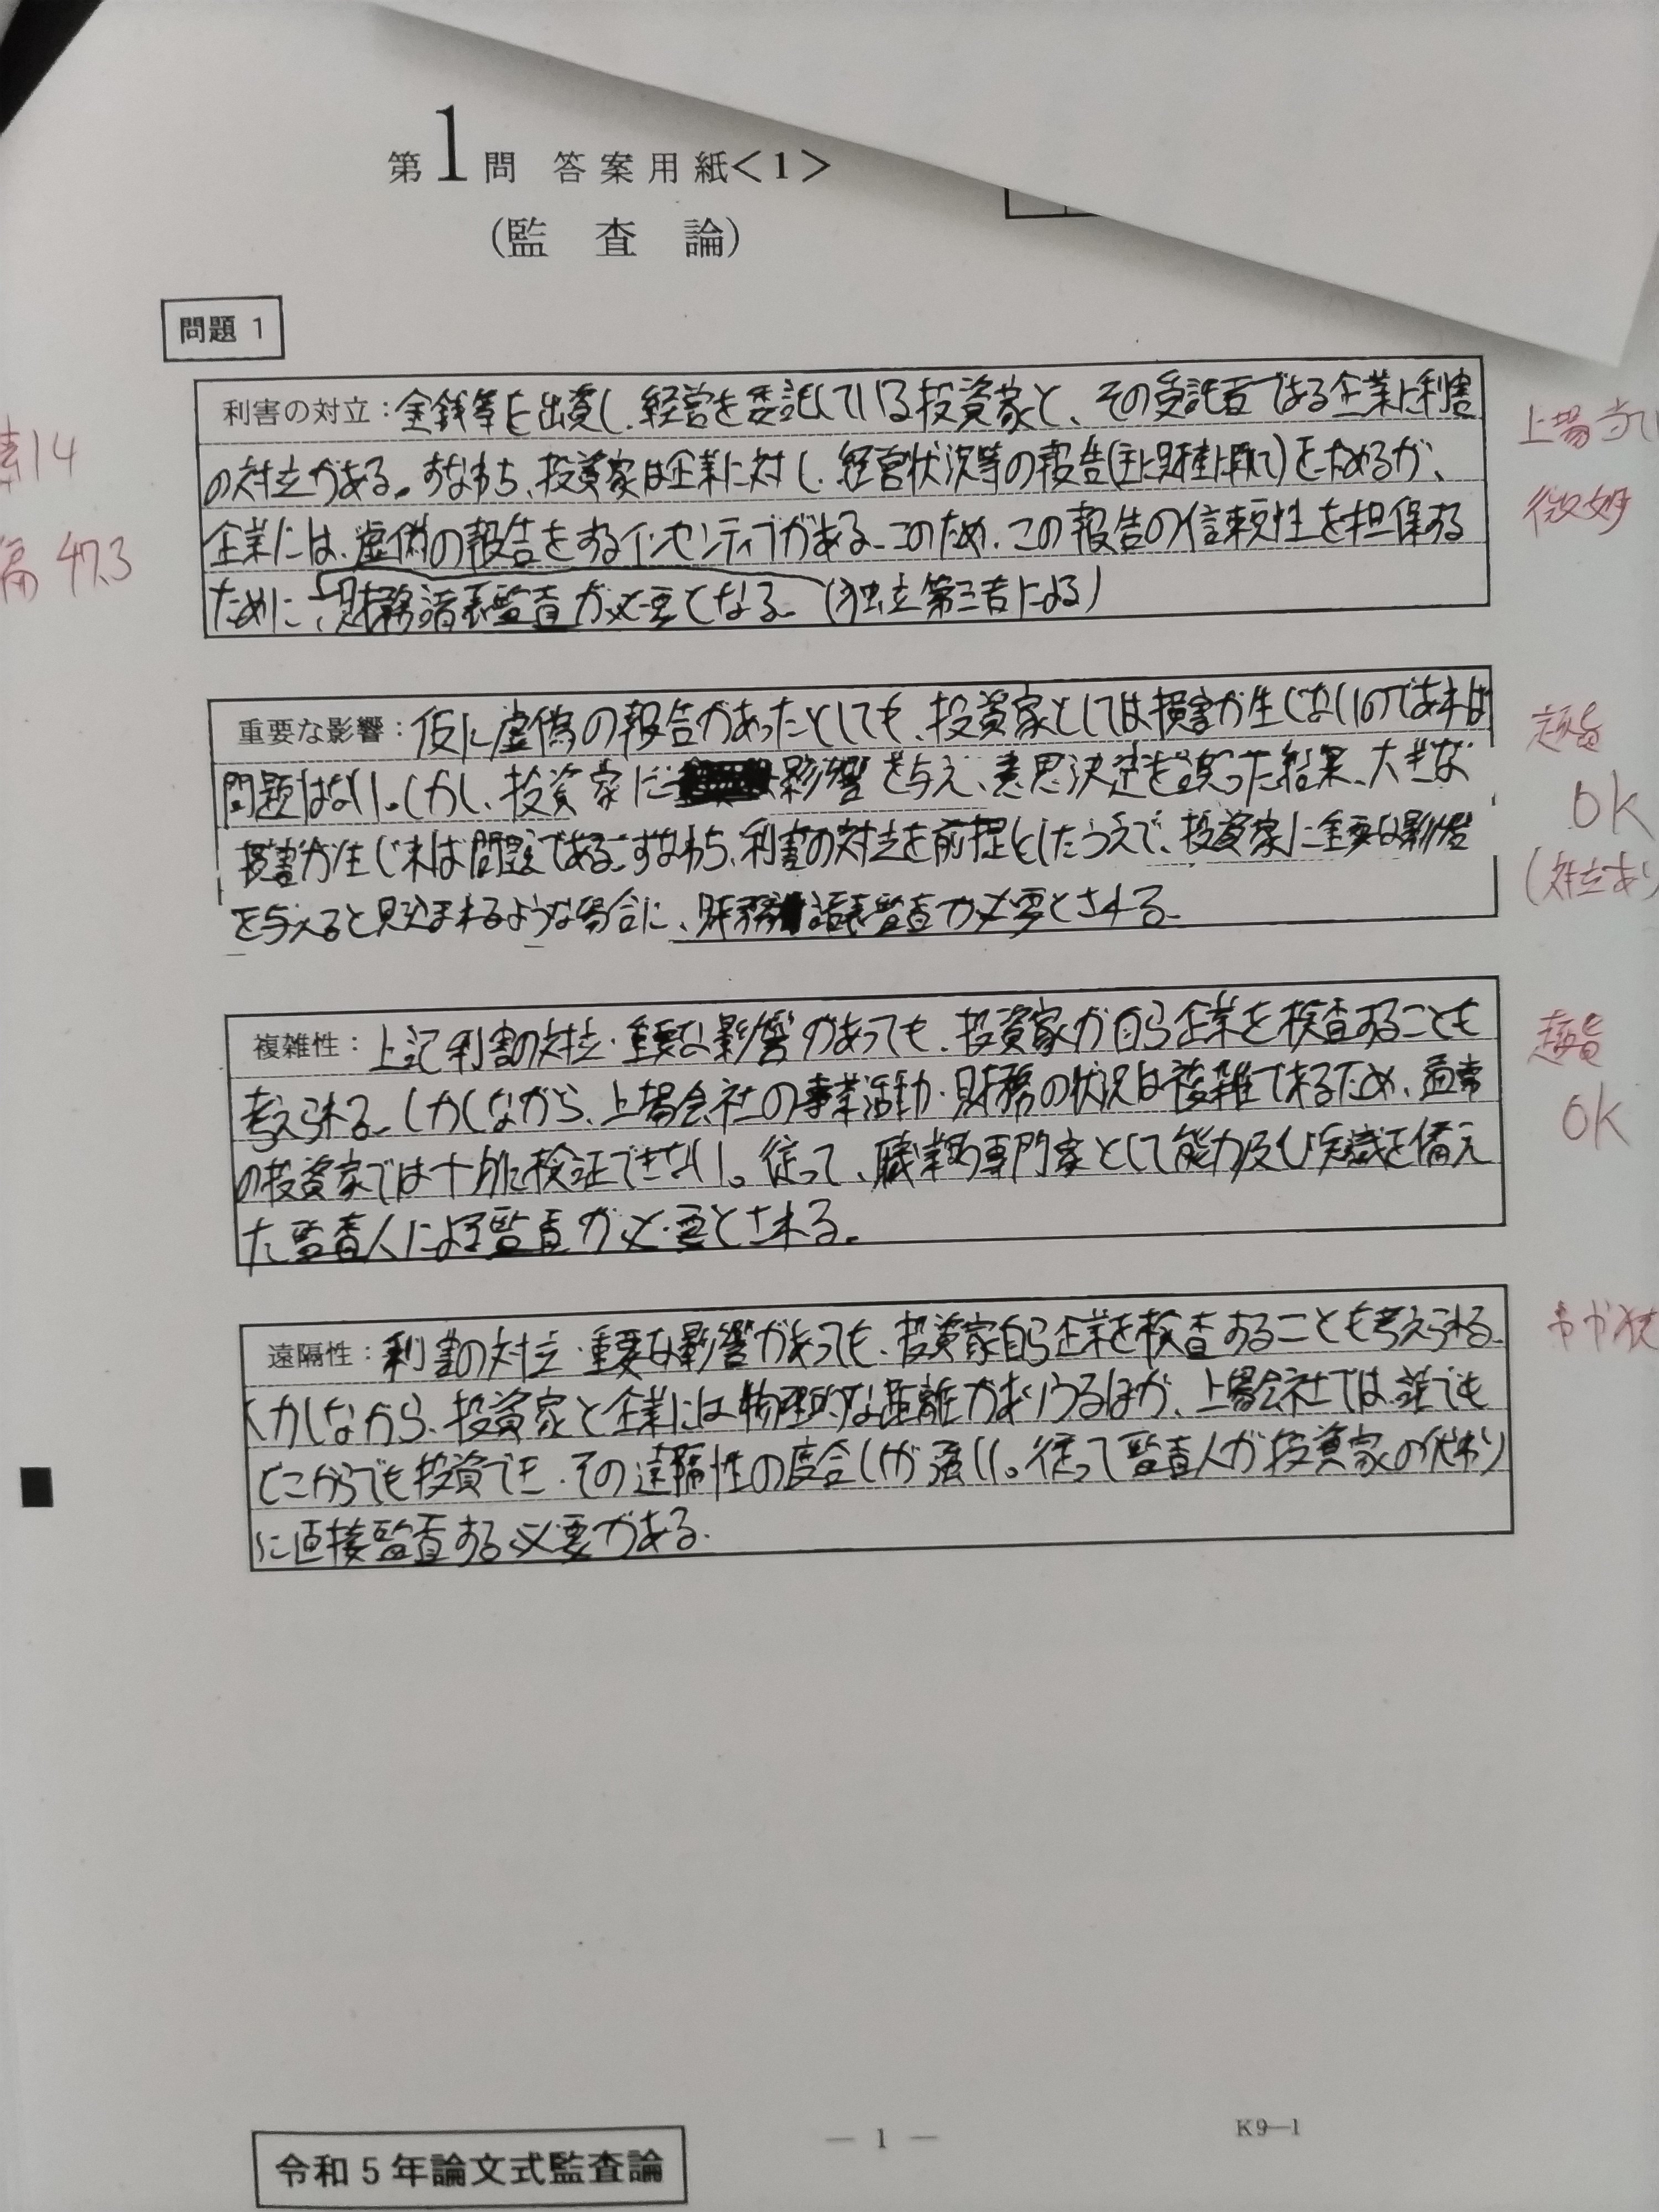 第1問 答案用紙<1>
(監査論)
問題 1
利害の対立：金銭等を出資し、経営を委託している投資家と、その受託者である企業に利害
の対立がある。すなわち、投資家は企業に対し、経営状況等の報告(主に財産に関して)を求めるが、
企業には、虚偽の報告をするインセンティブがある。このため、この報告の信頼性を担保する
ために、財務諸表監査が必要となる。(独立第三者による)
重要な影響：仮に虚偽の報告があったとしても、投資家としては損害が生じないのであれば
問題はない。しかし、投資家に影響を与え、意思決定を誤った結果、大きな
損害が生じれば問題である。すなわち、利害の対立を前提としたうえで、投資家に重要な影響
を与えると見込まれるような場合に、財務諸表監査が必要とされる。
複雑性：上記利害の対立・重要な影響があっても、投資家が自ら企業を検査することも
考えられる。しかしながら、上場会社の事業活動・財務の状況は複雑であるため、通常
の投資家では十分に検証できない。従って、職業的専門家として能力及び知識を備え
た監査人による監査が必要とされる。
遠隔性：利害の対立・重要な影響があっても、投資家自ら企業を検査することも考えられる。
しかしながら、投資家と企業には物理的な距離がありうるほか、上場会社では誰でも
どこからでも投資でき、その遠隔性の度合いが強い。従って監査人が投資家の代わり
に直接監査する必要がある。
素14
偏 47.3
上場
微妙
趣旨
OK
(対立あり
趣旨
OK
やや
— 1 —
K9—1
令和5年論文式監査論